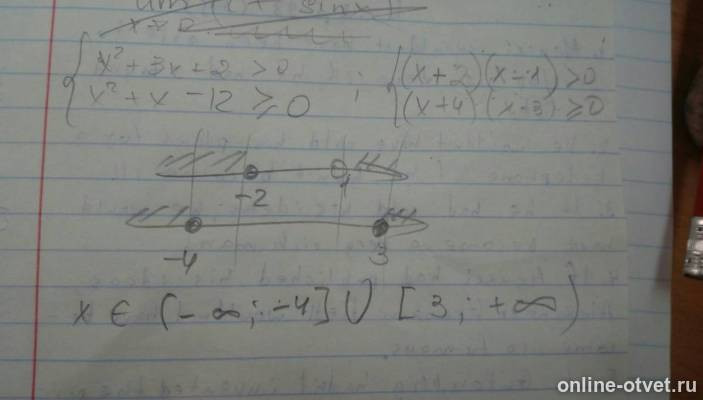 x² + 3x + 2 > 0 ; (x+2)(x-1) > 0
x² + x - 12 ≥ 0 (x+4)(x-3) ≥ 0
-2 1
-4 3
x ∈ (-∞; -4] ∪ [3; +∞)
online-otvet.ru